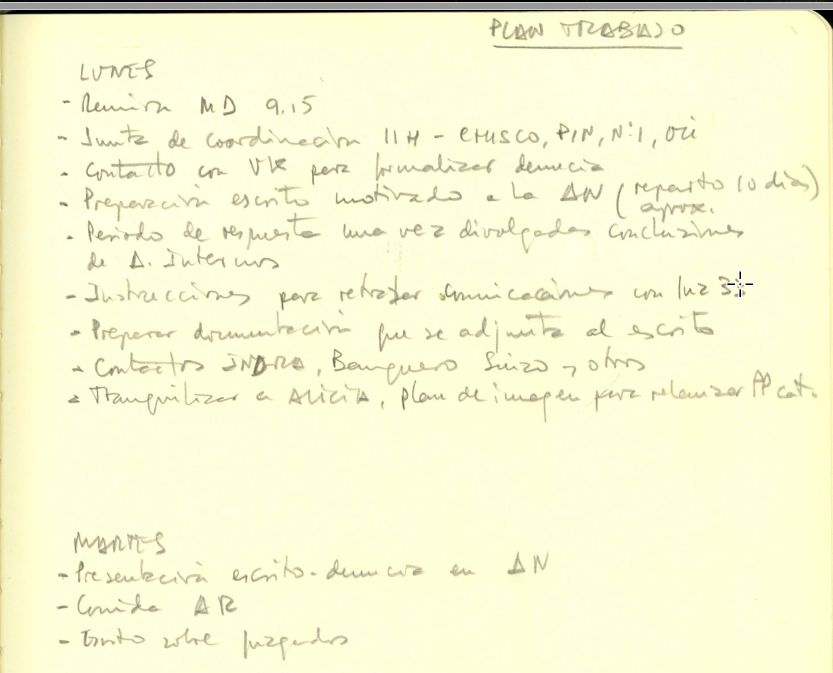 PLAN TRABAJO
LUNES
- Reunión MD 9.15
- Junta de coordinación 11H - CHISCO, PIN,
- Contacto con VK para formalizar denuncia
- Preparación escrito motivado a la AN (reparto 10 dias)
aprox.
- Periodo de respuesta una vez divulgadas conclusiones
de A. Internos
- Instrucciones para retrasar comunicaciones con
- Preparar documentación que se adjunta al escrito
- Contactos INDRA, Banquero Suizo y otros
- Tranquilizar a ALICIA, plan de imagen para relanzar PP cat.
MARTES
- Presentación escrito-denuncia en AN
- Comida AR
- Escrito sobre juzgados